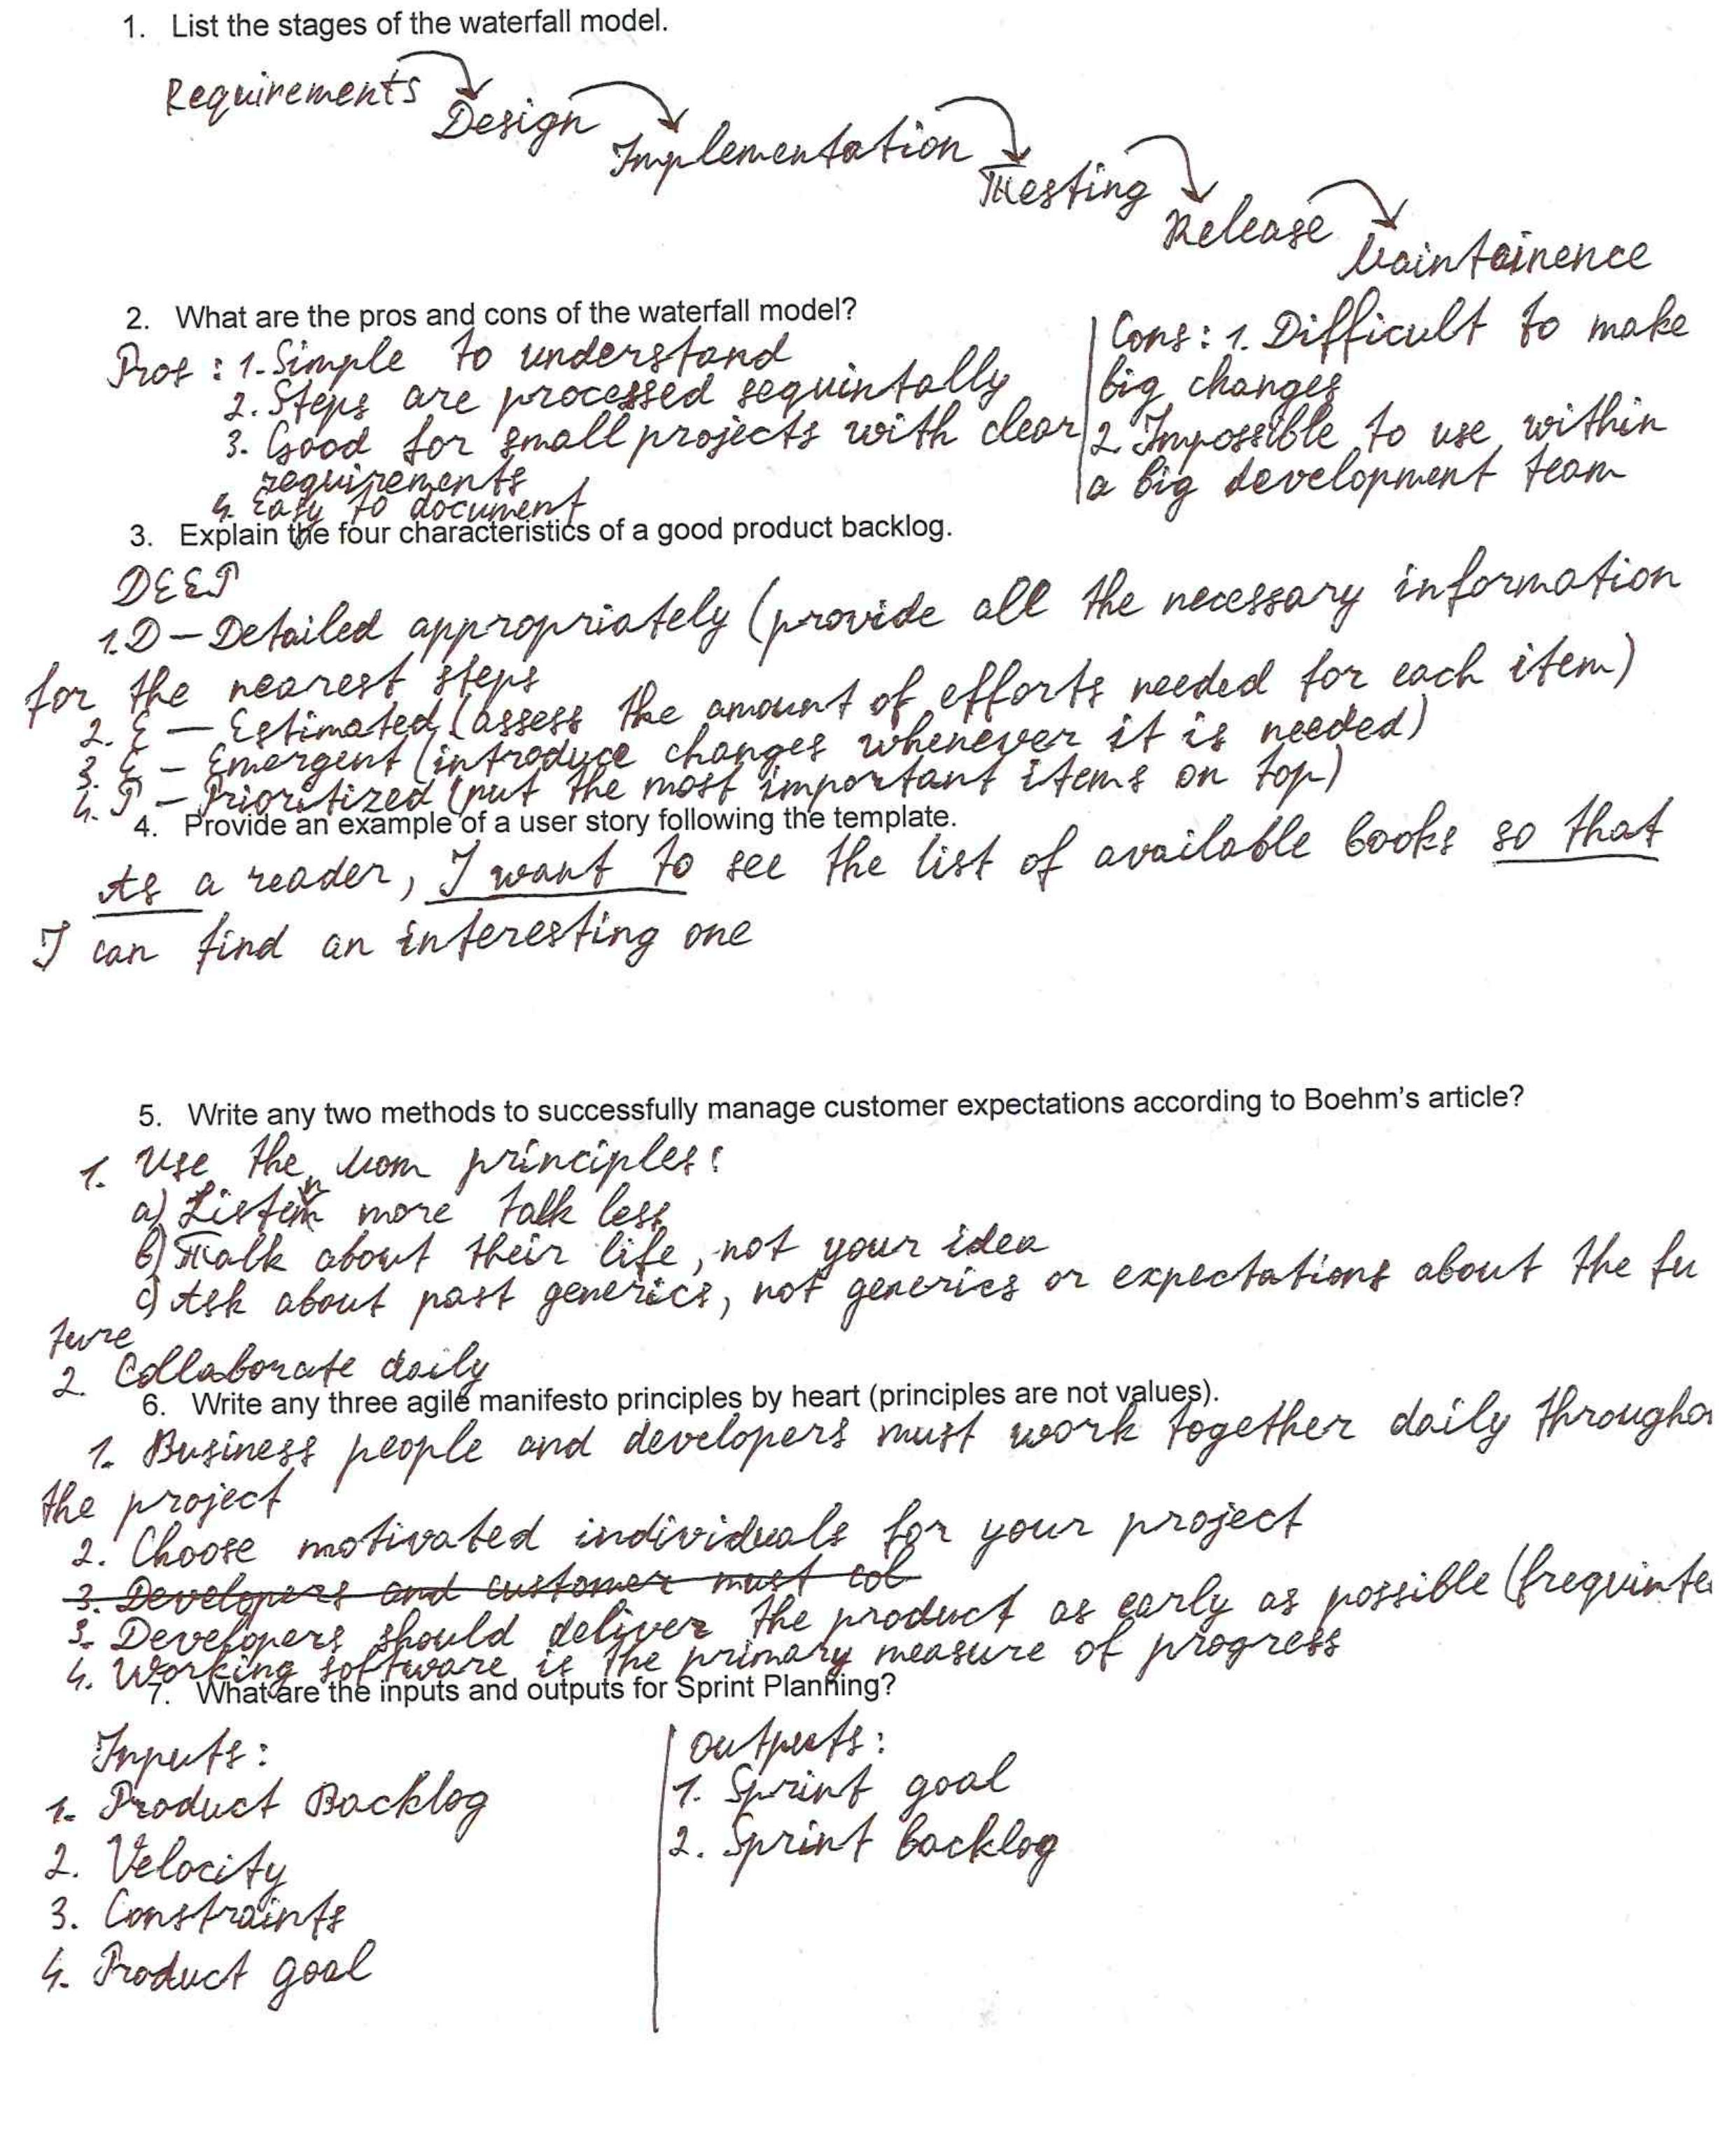 1. List the stages of the waterfall model.
Requirements
Design
Implementation
Testing
Release
Maintainence
2. What are the pros and cons of the waterfall model?
Pros: 1. Simple to understand
2. Steps are processed sequintally
3. Good for small projects with clear
requirements
4. Easy to document
Cons: 1. Difficult to make
big changes
2. Impossible to use within
a big development team
3. Explain the four characteristics of a good product backlog.
DEEP
1. D – Detailed appropriately (provide all the necessary information
for the nearest steps
2. E – Estimated (assess the amount of efforts needed for each item)
3. E – Emergent (introduce changes whenever it is needed)
4. P – Prioritized (put the most important items on top)
4. Provide an example of a user story following the template.
As a reader, I want to see the list of available books so that
I can find an interesting one
5. Write any two methods to successfully manage customer expectations according to Boehm's article?
1. Use the Mom principles:
a) Listen more talk less
b) Talk about their life, not your idea
c) Ask about past generics, not generics or expectations about the fu
ture
2. Collaborate daily
6. Write any three agile manifesto principles by heart (principles are not values).
1. Business people and developers must work together daily througho
the project
2. Choose motivated individuals for your project
3. Developers and customer must col
3. Developers should deliver the product as early as possible (frequinte
4. Working software is the primary measure of progress
7. What are the inputs and outputs for Sprint Planning?
Inputs:
1. Product Backlog
2. Velocity
3. Constraints
4. Product goal
Outputs:
1. Sprint goal
2. Sprint backlog